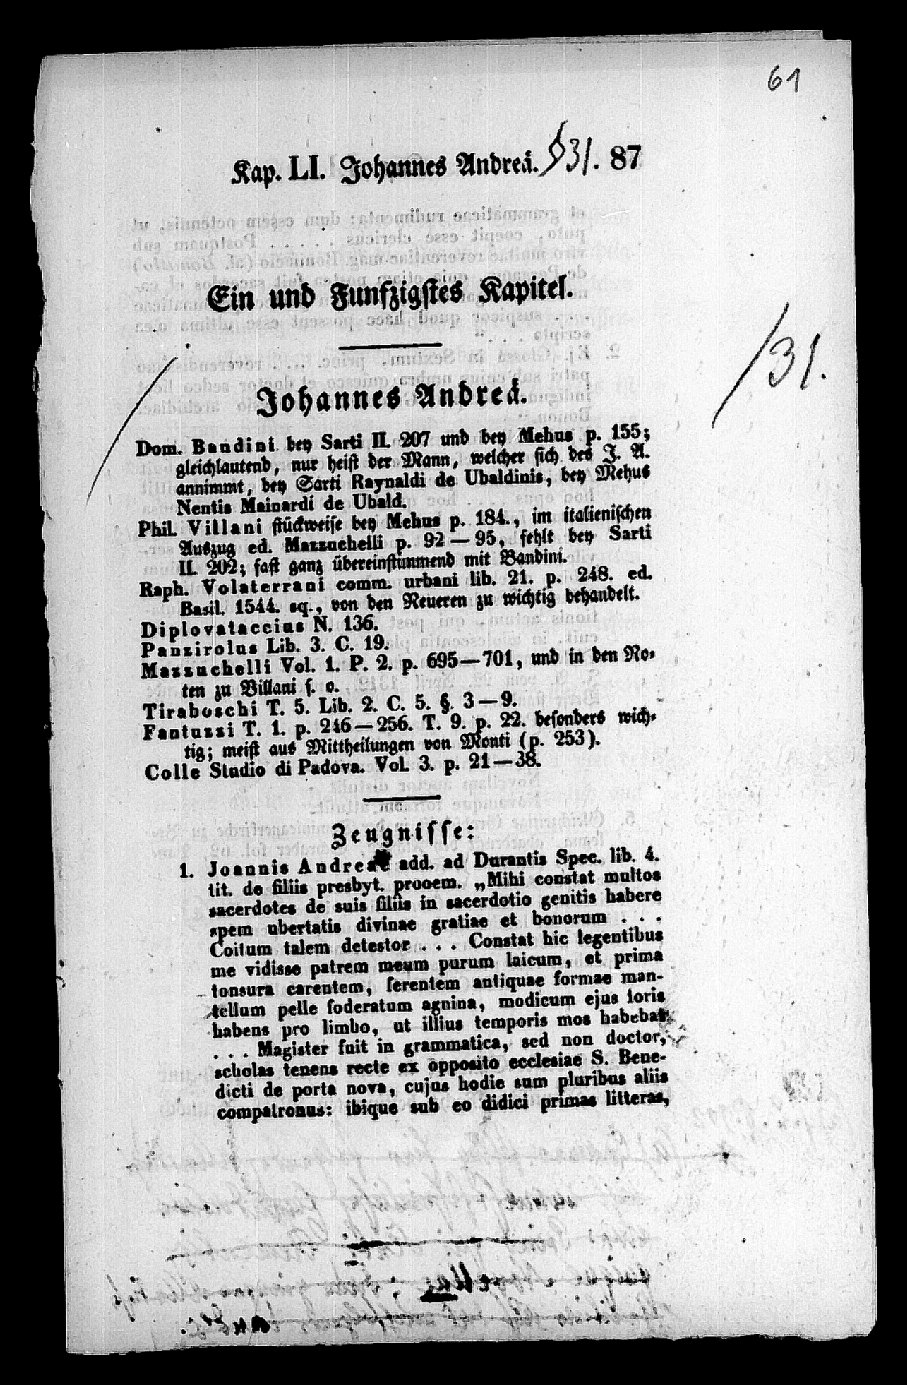 61
Kap. LI. Johannes Andreä. §31. 87
Ein und Funfzigstes Kapitel.
/31.
Johannes Andreä.
Dom. Bandini bey Sarti II. 207 und bey Mehus p. 155;
gleichlautend, nur heist der Mann, welcher sich des J. A.
annimmt, bey Sarti Raynaldi de Ubaldinis, bey Mehus
Nentis Mainardi de Ubald.
Phil. Villani stückweise bey Mehus p. 184., im italienischen
Auszug ed. Mazzuchelli p. 92—95, fehlt bey Sarti
II. 202; fast ganz übereinstimmend mit Bandini.
Raph. Volaterrani comm. urbani lib. 21. p. 248. ed.
Basil. 1544. sq., von den Neueren zu wichtig behandelt.
Diplovataccius N. 136.
Panzirolus Lib. 3. C. 19.
Mazzuchelli Vol. 1. P. 2. p. 695—701, und in den No-
ten zu Villani s. o.
Tiraboschi T. 5. Lib. 2. C. 5. §. 3—9.
Fantuzzi T. 1. p. 246—256. T. 9. p. 22. besonders wich-
tig; meist aus Mittheilungen von Monti (p. 253).
Colle Studio di Padova. Vol. 3. p. 21—38.
Zeugnisse:
1. Joannis Andreae add. ad Durantis Spec. lib. 4.
tit. de filiis presbyt. prooem. „Mihi constat multos
sacerdotes de suis filiis in sacerdotio genitis habere
spem ubertatis divinae gratiae et bonorum . . .
Coitum talem detestor . . . Constat hic legentibus
me vidisse patrem meum purum laicum, et prima
tonsura carentem, ferentem antiquae formae man-
tellum pelle foderatum agnina, modicum ejus loris
habens pro limbo, ut illius temporis mos habebat
. . . Magister fuit in grammatica, sed non doctor,
scholas tenens recte ex opposito ecclesiae S. Bene-
dicti de porta nova, cujus hodie sum pluribus aliis
compatronus: ibique sub eo didici primas litteras,